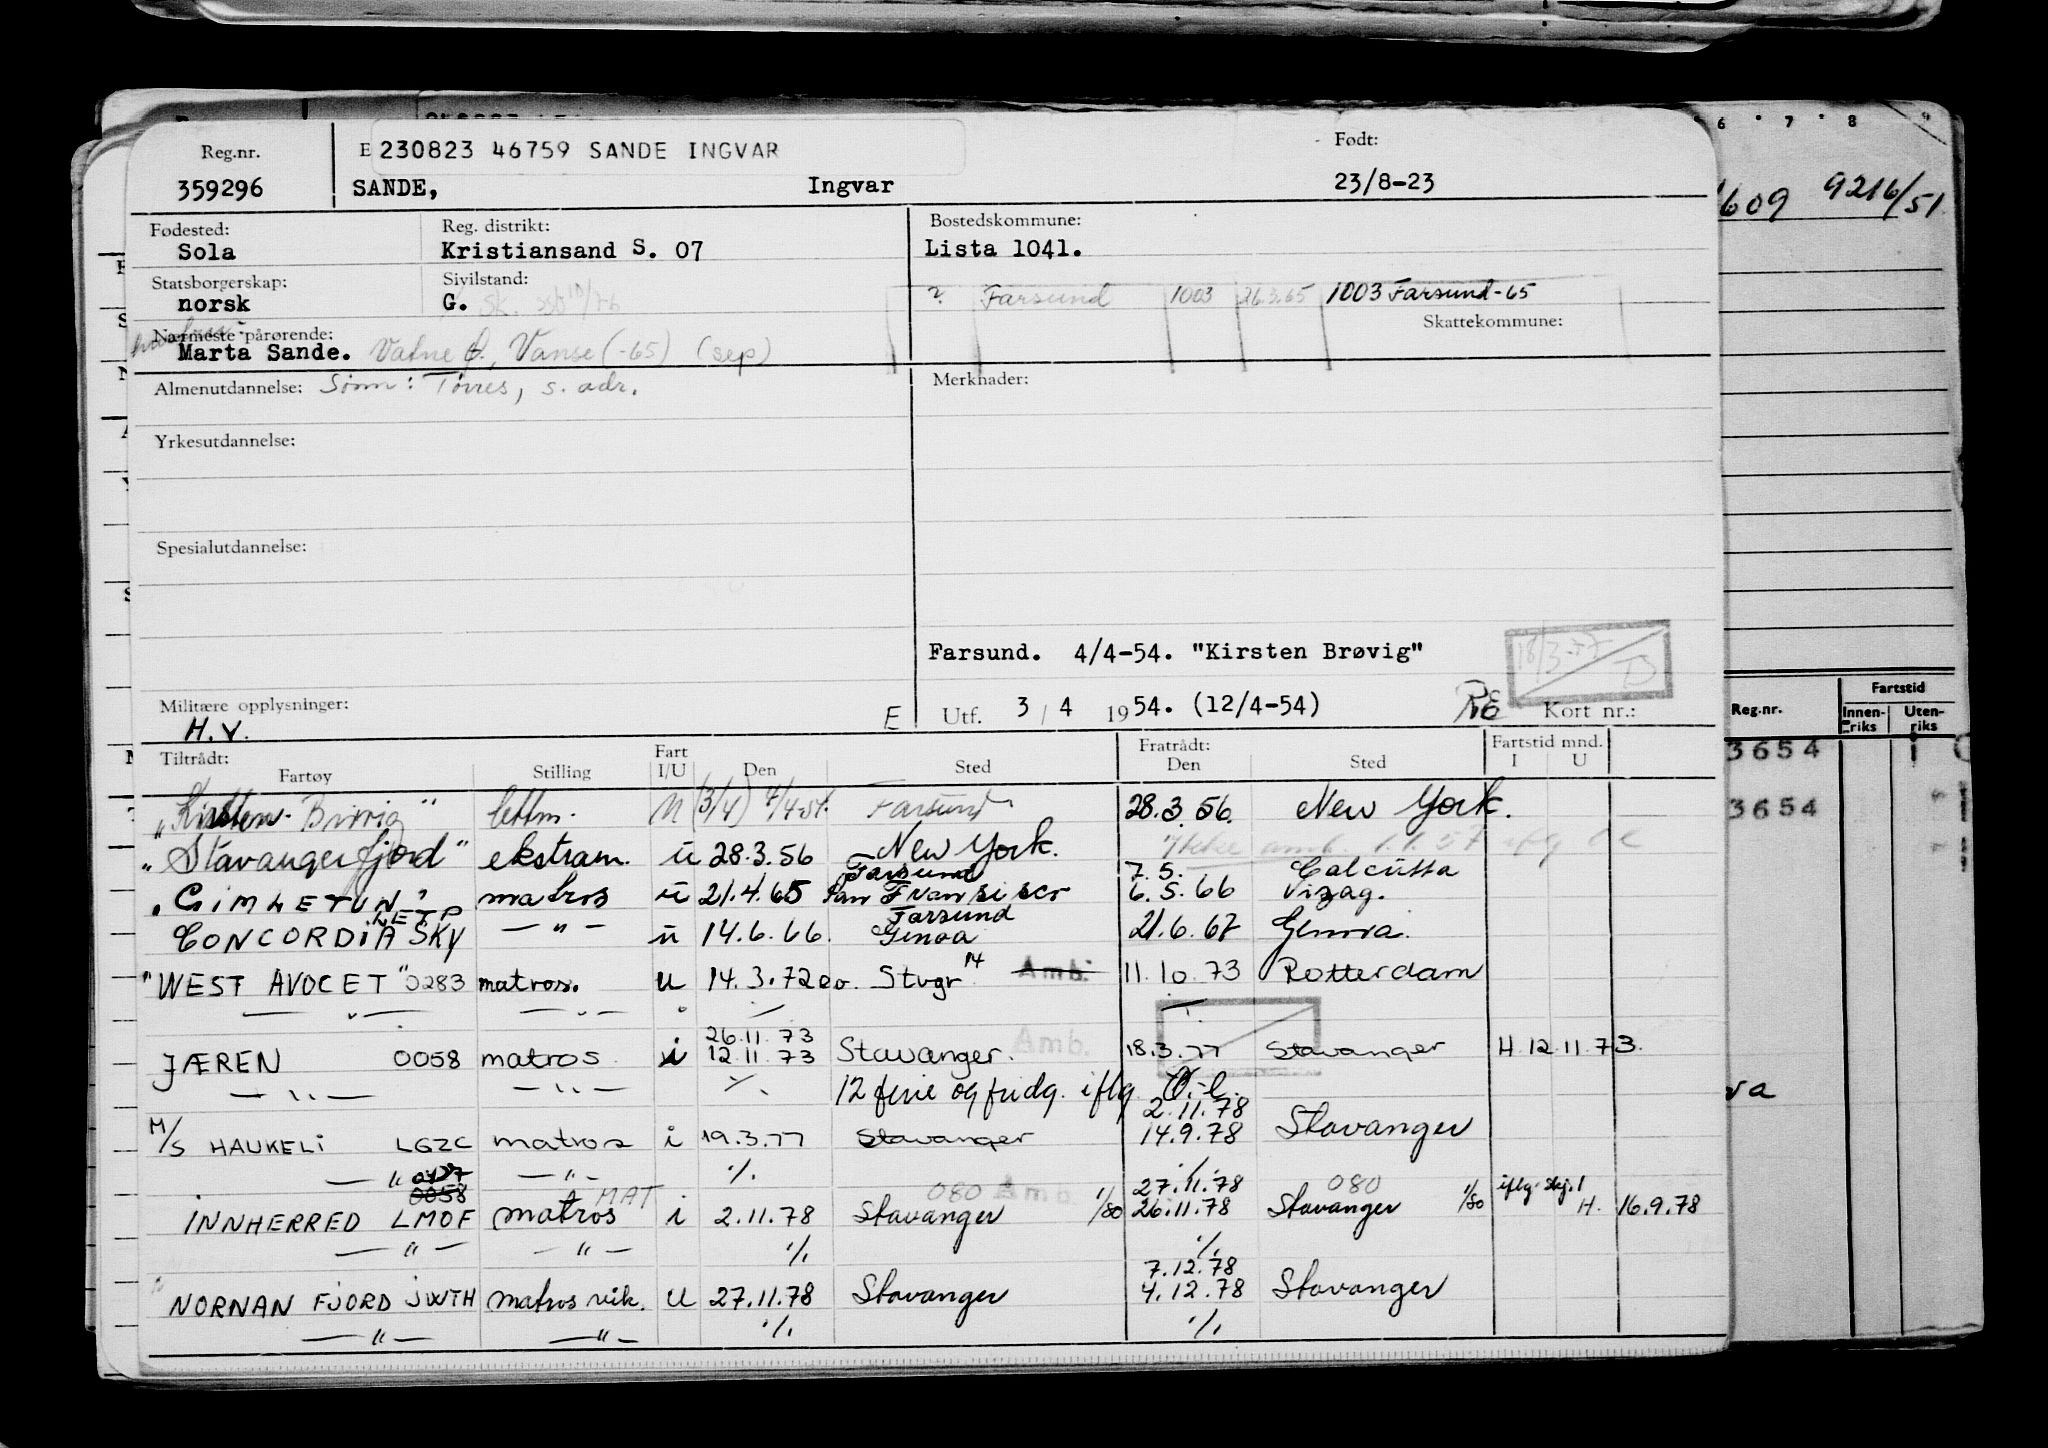 Reg.nr. E 230823 46759 SANDE INGVAR Født:
359296 SANDE, Ingvar 23/8-23
609 9216/51
Fødested: Reg. distrikt: Bostedskommune:
Sola Kristiansand S. 07 Lista 1041.
Statsborgerskap: Sivilstand:
norsk G. ? Farsund 1003 26.3.65 1003 Farsund-65
Nærmeste pårørende: Skattekommune:
Marta Sande. Vatne Ø., Vanse (-65) (sep)
Almenutdannelse: Sønn: Tørres, s. adr. Merknader:
Yrkesutdannelse:
Spesialutdannelse:
Farsund. 4/4-54. "Kirsten Brøvig"
18/3-77
Militære opplysninger: E Utf. 3/4 1954. (12/4-54) RE Kort nr.:
H.V.
Reg.nr. Fartstid
Innenriks Utenriks
3654
3654
va
Tiltrådt: Fart Fratrådt: Fartstid mnd.
Fartøy Stilling I/U Den Sted Den Sted I U
"Kirsten Brøvig" lettm. U (3/4) 4/4-54. Farsund 28.3.56. New York.
"Stavangerfjord" ekstram. u 28.3.56 New York.
Farsund 7.5. Calcutta
"GIMLETUN" matros u 21.4.65 San Fransisco 6.5.66 Vizag.
LETP Farsund
CONCORDIA SKY — " — u 14.6.66. Genoa 21.6.67 Genova.
"WEST AVOCET" 0283 matros. u 14.3.72 eo. Stvgr 14 Amb. 11.10.73 Rotterdam
— " — — " —
26.11.73
JÆREN 0058 matros i 12.11.73 Stavanger. Amb. 18.3.77 Stavanger H. 12.11.73.
— " — — " — ./. 12 ferie og fridg. iflg. O.-l.
2.11.78
M/S HAUKELI LGZC matros i 19.3.77 Stavanger 14.9.78 Stavanger
— " — — " — ./. ./.
0058 MAT 080 Amb. 27.11.78 080 iflg. skj.
INNHERRED LMOF matros i 2.11.78 Stavanger 1/80 26.11.78 Stavanger 1/80 H. 16.9.78
— " — — " — ./. ./.
7.12.78
NORNAN FJORD JWTH matros vik. U 27.11.78 Stavanger 4.12.78 Stavanger
— " — — " — ./. ./.